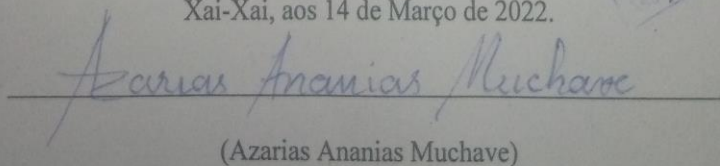 Xai-Xai, aos 14 de Março de 2022.
Azarias Ananias Muchave
(Azarias Ananias Muchave)